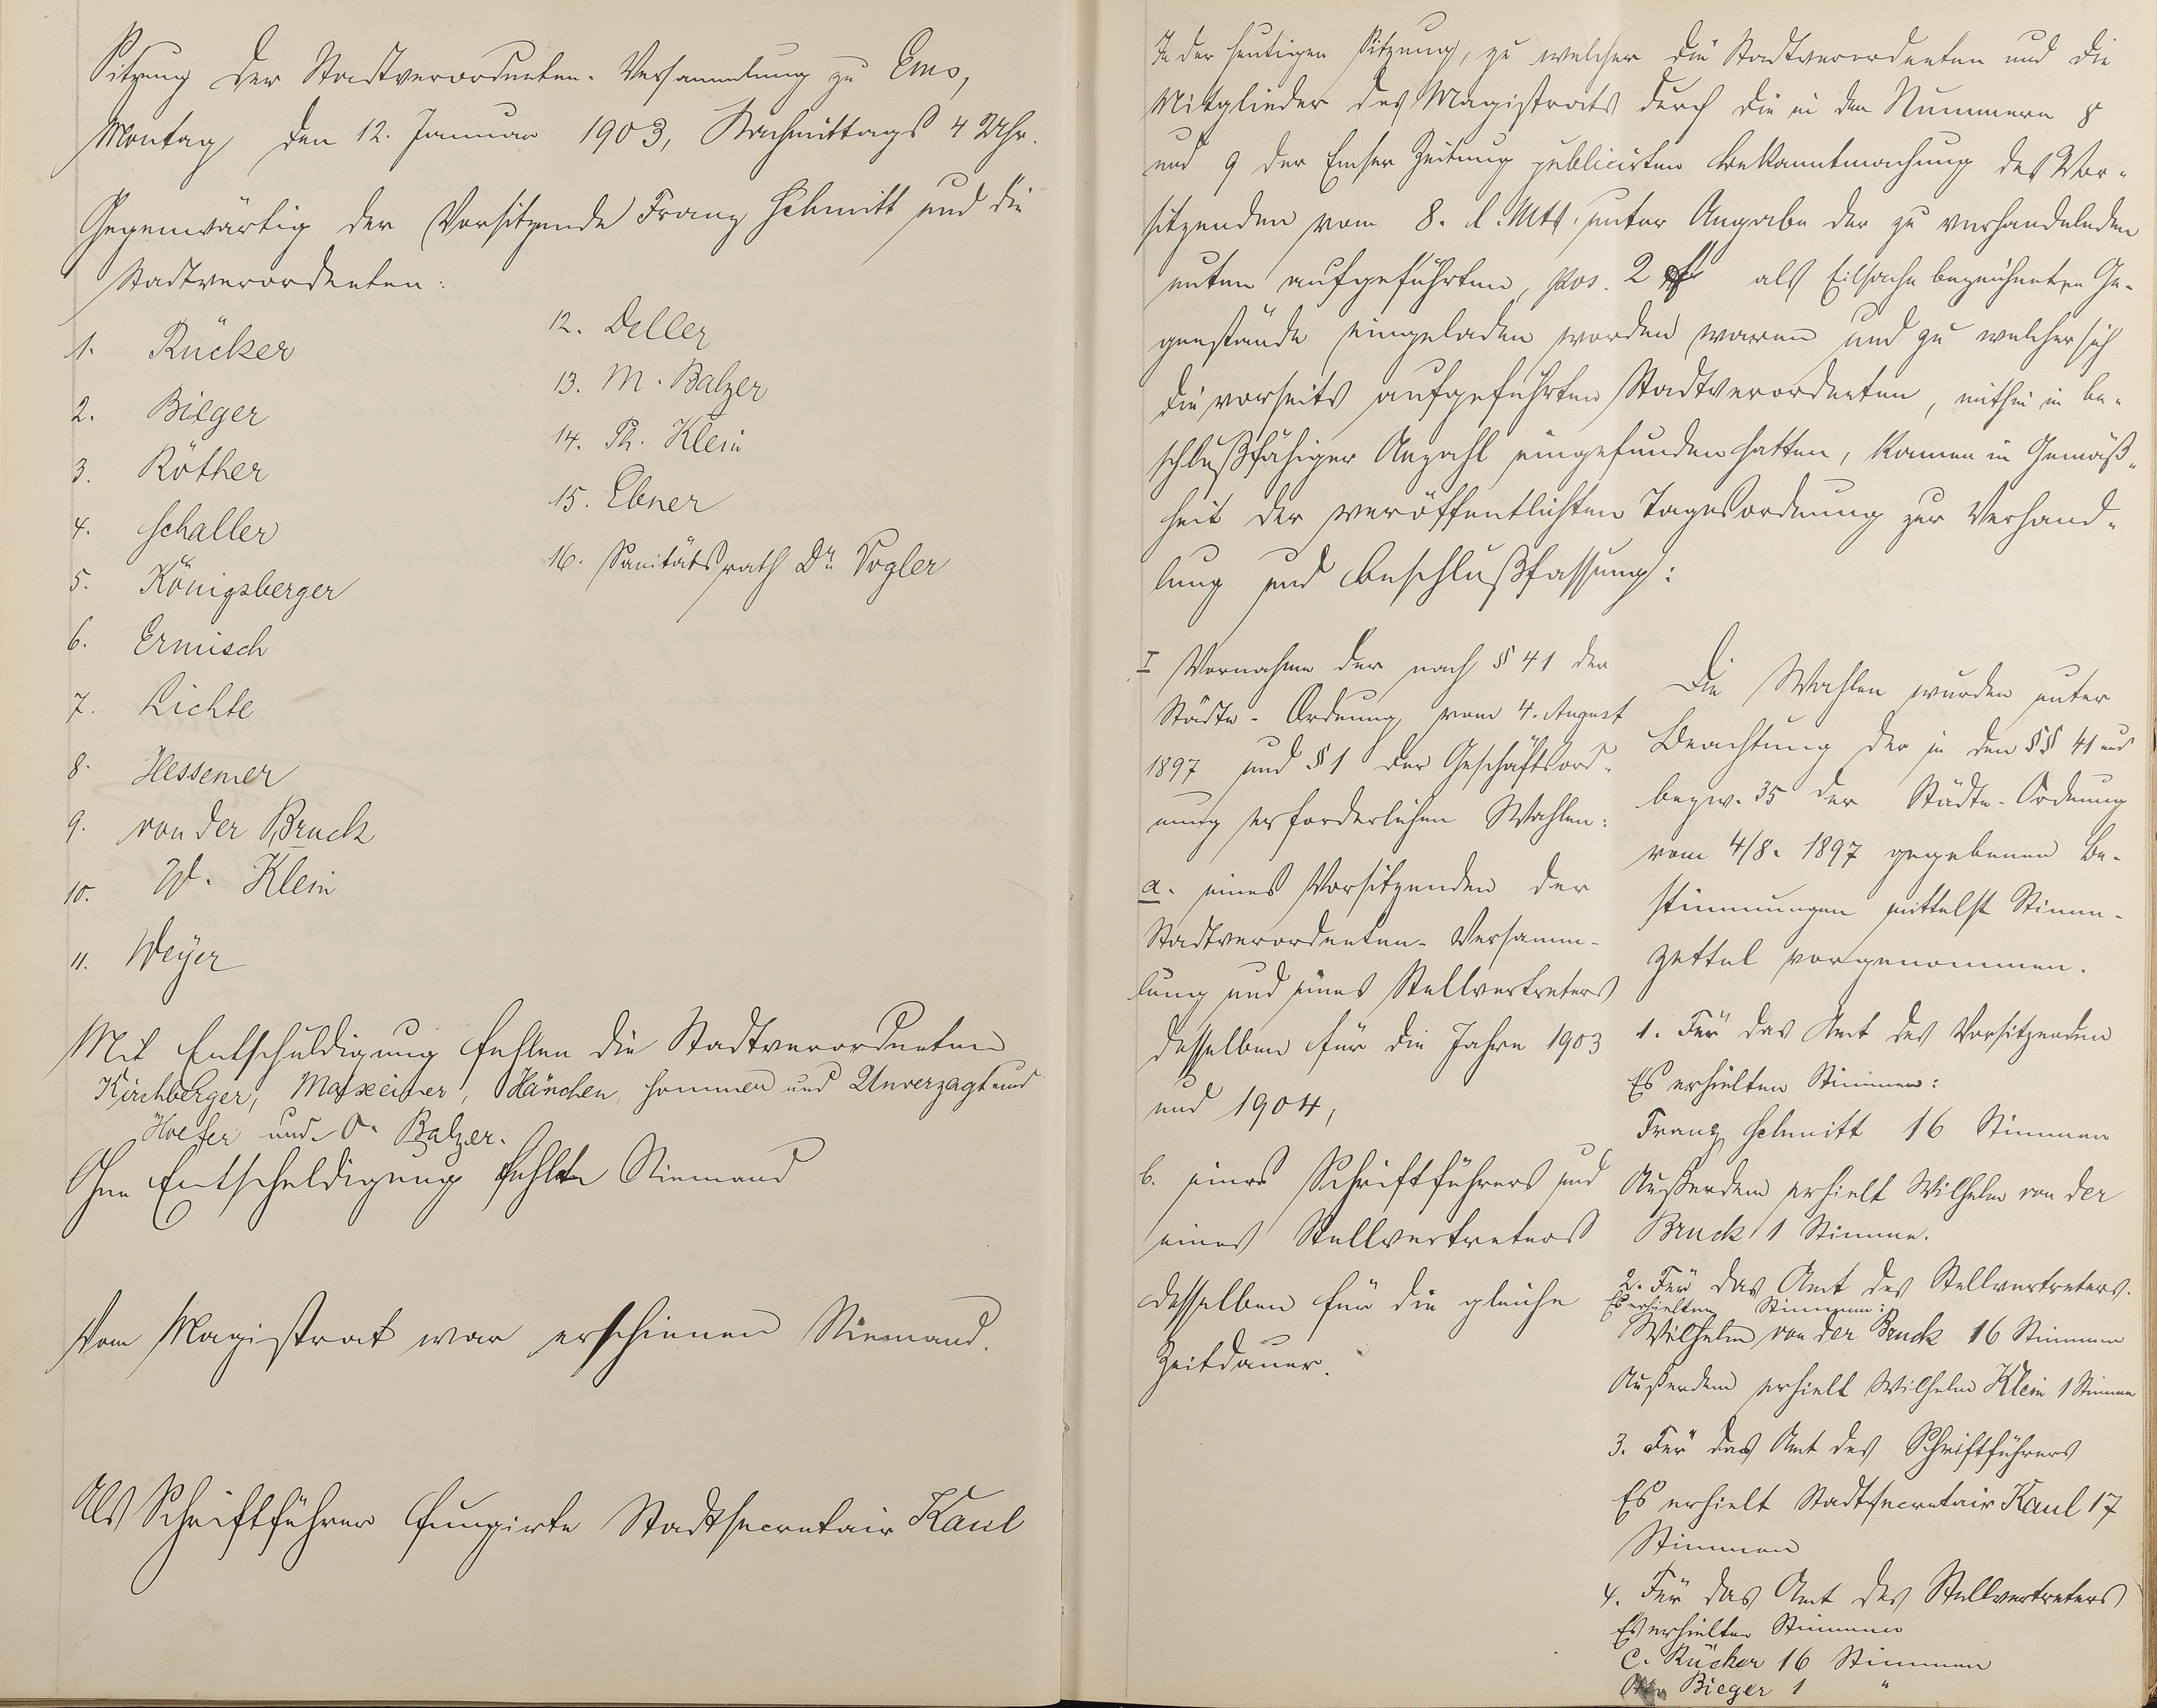 Sitzung der Stadtverordneten-Versammlung zu Ems,
Montag den 12. Januar 1903, Nachmittags 4 Uhr.
Gegenwärtig der Vorsitzende Franz Schmitt und die
Stadtverordneten:
1. Rücker
2. Bieger
3. Röther
4. Schaller
5. Königsberger
6. Ermisch
7. Lichte
8. Hessemer
9. von der Bruck
10. W. Klein
11. Weyer
12. Deller
13. M. Balzer
14. Ph. Klein
15. Ebner
16. Sanitätsrath Dr. Vogler
Mit Entschuldigung fehlen die Stadtverordneten
Kirchberger, Maxeiner, Hänchen, Sommer und Unverzagt und
Hoefer und O. Balzer.
Ohne Entschuldigung fehlte Niemand
Vom Magistrat war erschienen Niemand.
Als Schriftführer fungirte Stadtsecretair Kaul
In der heutigen Sitzung, zu welcher die Stadtverordneten und die
Mitglieder des Magistrats durch die in den Nummern 8
und 9 der Emser Zeitung publicirten Bekanntmachung des Vor-
sitzenden vom 8. d. Mts. unter Angabe der zu verhandelnden
unten aufgeführten, pos. 2 als Eilsache bezeichneten Ge-
genstände eingeladen worden waren und zu welcher sich
die vorseits aufgeführten Stadtverordneten, mithin in be-
schlußfähiger Anzahl eingefunden hatten, kamen in Gemäß-
heit der veröffentlichten Tagesordnung zur Verhand-
lung und Beschlußfassung:
I Vornahme der nach § 41 der
Städte-Ordnung vom 4. August
1897 und § 1 der Geschäftsord-
nung erforderlichen Wahlen:
a. eines Vorsitzenden der
Stadtverordneten-Versamm-
lung und eines Stellvertreters
desselben für die Jahre 1903
und 1904,
b. eines Schriftführers und
eines Stellvertreters
desselben für die gleiche
Zeitdauer.
Die Wahlen wurden unter
Beachtung der in den §§ 41 und
bezw. 35 der Städte-Ordnung
vom 4/8. 1897 gegebenen Be-
stimmungen mittelst Stimm-
zettel vorgenommen.
1. Für das Amt des Vorsitzenden
Es erhielten Stimmen:
Franz Schmitt 16 Stimmen
Außerdem erhielt Wilhelm von der
Bruck 1 Stimme.
2. Für das Amt des Stellvertreters.
Es erhielten Stimmen:
Wilhelm von der Bruck 16 Stimmen
Außerdem erhielt Wilhelm Klein 1 Stimme
3. Für das Amt des Schriftführers
Es erhielt Stadtsecretair Kaul 17
Stimmen
4. Für das Amt des Stellvertreters
Es erhielten Stimmen
C. Rücker 16 Stimmen
Bieger 1 "